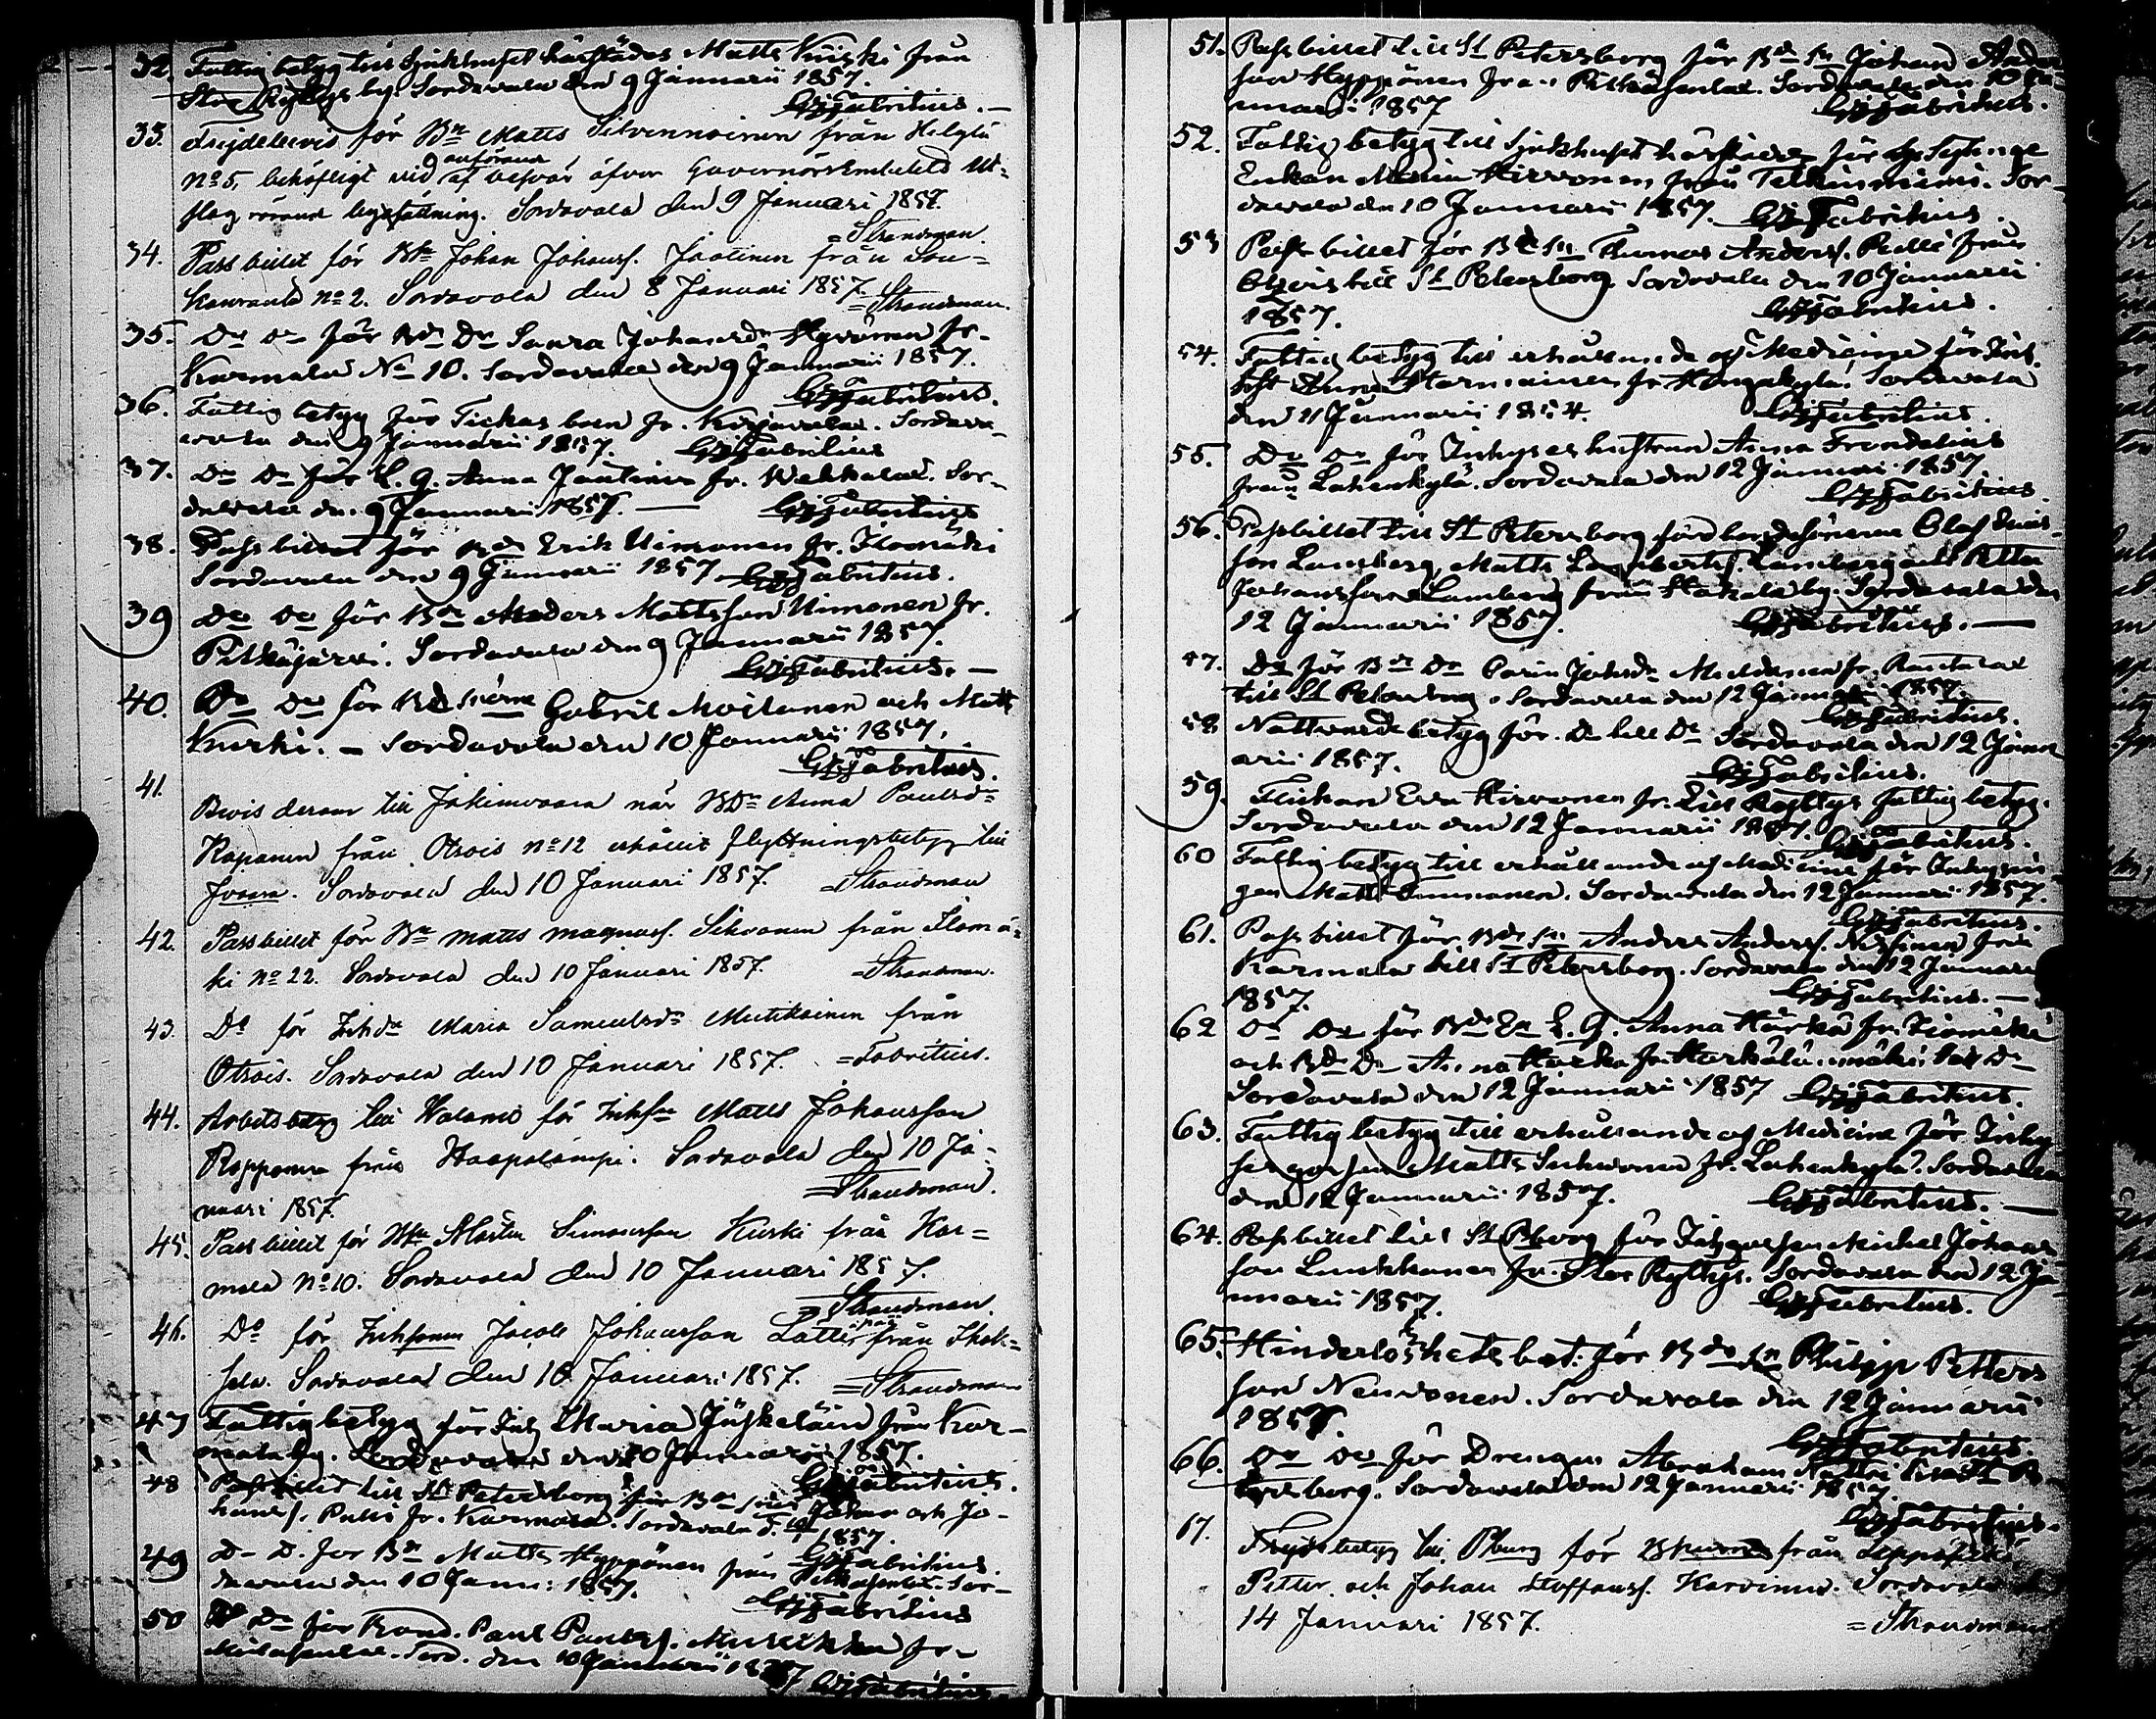 32. Fattig betyg till Sjukhuset härstädes Matts Kurki från
Stor Rytty by. Sordavala den 9 Januarii 1857.
GWFabritius.
33. Frejdebevis för Bn Matts Silvennoinen från Helylä
No 5, behöfligt vid anförand af besvär öfver Guvernörs Embetets Ut=
slag rörande . Sordavala den 9 Januari 1857.
=Strandman.
34. Pass billet för Bn Johan Johanss. Jaatinen från Sou=
kanranta no 2. Sordavala den 8 Januari 1857. =Strandman.
35. Do Do för Bd Dr Saara Johansdr Hyvönen fr.
Karmala No 10. Sordavala den 9 Januarii 1857.
GWFabritius.
36. Fattig betyg för Fickas barn fr. Kirjavalax. Sordava-
vala den 9 Januarii 1857. GWFabritius
37. Do Do för E. G. Anna Jaatinen fr. Wekkalax. Sor-
davala den 9 Januari 1857. — GWFabritius
38. Pass billet för Bd Erik Uimonen fr. Ilomäki
Sordavala den 9 Januarii 1857 GWFabritius.
39 Do Do för Bd Anders Mattsson Uimonen fr.
Pitkäjärvi. Sordavala den 9 Januarii 1857.
GWFabritius. —
40. Do Do för Bd Sönerne Gabriel Moilanen och Matts
Kurki. – Sordavala den 10 Januari 1857.
GWFabritius.
41.
Bevis derom till Jakimvaara när BDr Anna Paulsdr
Kopanen från Otsois no 12 erhållit flyttningsbetyg till
Jvaara. Sordavala den 10 Januari 1857. =Strandman
42. Pass billet för Bn Matts Magnuss. Sihvonen från Ilomä=
ki no 22. Sordavala den 10 Januari 1857. =Strandman.
43. Do för Inhdr Maria Samuelsdr Mutikainen från
Otsois. Sordavala den 10 Januari 1857. =Fabritius.
44. Arbetsbetyg till Walamo för Inhsn Matts Johansson
Ropponen från Haapalampi. Sordavala den 10 Ja=
nuari 1857. =Strandman.
45. Pass billet för Bn Mårten Simonsson Kurki från Kar=
mala no 10. Sordavala den 10 Januari 1857.
=Strandman.
46. Do för Inhsonen Jacob Johansson Lätti från
. Sordavala den 10 Januari 1857. =Strandman
47 Fattig betyg för Inh Maria Jäskeläin från Kar-
mala by. Sordavala den 10 Januarii 1857.
GWFabritius.
48 Pass billet till St Petersborg för Bd Johan och Jo-
hanss. Pulli fr. Karmala. Sordavala d. 10 1857.
GWFabritius.
49 D- D. för Bd Matts Hyppönen från Pitkäsenlax. Sor-
davala den 10 Janu: 1857.
GWFabritius
50 Do Do för Bond. Paul Paulss. fr-
. Sord. den 10 Januarii 1857
GWFabritius
51. Pass billet till St Petersborg för Bd Sn Johan Anders
son Hyppönen från Pitkäsenlax. Sordavala den 10 Ja-
nuarii 1857 GWFabritius.
52. Fattig betyg till Sjukhuset härstädes för
Enkan Maria Hirvonen från Telkinniemi. Sor-
davala den 10 Januarii 1857. GWFabritius.
53 Pass billet för Bd Sn Thomas Anderss. Pulli från
Otsois till St Petersborg Sordavala den 10 Januarii
1857. GWFabritius.
54. Fattig betyg till erhållande af Medicine för Inh.
hst Anna fr. . Sordavala
den 11 Januarii 1854. GWFabritius.
55. Do Do för Inhyses hustrun Anna Frondelius
från Lahenkylä. Sordavala den 12 Januari 1857
GWFabritius.
56. Pass billet till St Petersborg för bondesönerne Olof
son Lamberg, Matts Lambertss. Lamberg och Petter
Johansson Lamberg från Hakala by. Sordavala den
12 Januarii 1857. GWFabritius. —
47. Do för Bd Dr Carin Johsdr fr. Rautalax
till St Petersborg. Sordavala den 12 Januari 1857.
GWFabritius.
58 Nattvardsbetyg för Do till Do Sordavala den 12 Janu
arii 1857. GWFabritius.
59. Flickan Eva Hirvonen fr. Lill Ryttys fattig betyg.
Sordavala den 12 Januarii 1857.
GWFabritius.
60 Fattig betyg till erhållande af Medicine för Inhysin
gen Matts Immonen. Sordavala den 12 Januari 1857.
GWFabritius.
61. Pass billet för Bd Sn Anders Anderss. från
Karmala till St Petersborg. Sordavala den 12 Januari
1857. GWFabritius. —
62 Do Do för Bd En E. G. Anna Härkä fr. Ilomäki
och Bd D- Anna Harka fr. Do
Sordavala den 12 Januarii 1857 GWFabritius.
63. Fattig betyg till erhållande af Medicine för Inhy
ses sonen Matts Sihvonen fr. Lahenkylä. Sordavala
den 12 Januarii 1857. GWFabritius. —
64. Pass billet till St Pborg för Inhysessonen Michel Johans
son Luukkanen fr. Stor Ryttys. Sordavala den 12 Ja
nuarii 1857. GWFabritius.
65. Hinderlöshets bet. för Bd Sn Philipp Petters
son Neuvonen. Sordavala den 12 Januarii
1857. GWFabritius.
66. Do Do för Drengen Abraham till St Pe
tersborg. Sordavala den 12 Januarii 1857.
GWFabritius.
67. Frejdebetyg till Pburg för från
Petter och Johan Stoffanss. Karvinen. Sordavala den
14 Januari 1857. =Strandman